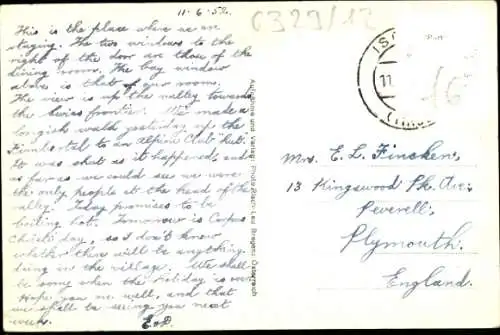 11-6-52.
This is the place where we are
staying. The two windows to the
right of the door are those of the
dining room. The bay window
above is that of our room.
The view is up the valley towards
the Swiss frontier. We made a
longish walk yesterday up the
to an Alpine Club "hut".
It was shut as it happened, and
as far as we could see we were
the only people at the head of the
valley. Today promises to be
boiling hot. Tomorrow is Corpus
Christi day, so I don't know
whether there will be anything
doing in the village. We shall
be home when the holiday is over.
Hope you are well, and that
we shall be seeing you next
week.
E & D.
0329/12
Aufnahme und Verlag: Bregenz Österreich
11.
16
Mrs. E. L. Fincken,
13 Kingswood Pk. Ave.,
Peverell,
Plymouth.
England.